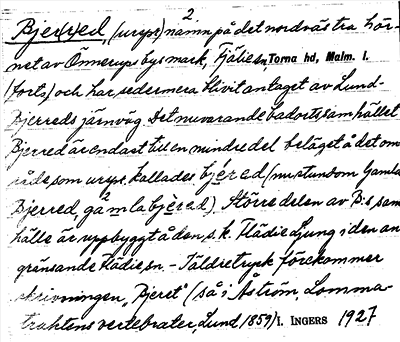 Bjerred, (urspr) namn på det nordvästra hör-
net av Önnerups bysmark, Fjälie sn, Torna hd, Malm. l.
(forts) och har sedermera blivit antaget av Lund-
Bjerreds järnväg. Det nuvarande badortssamhället
Bjerred är endast till en mindre del beläget å det om-
råde som urspr. kallades bjéred (nu stundom Gamla
Bjerred, gamla bjèred). Större delen av B:s sam-
hälle är uppbyggt å den s.k. Flädie Ljung i den an-
gränsande Flädie sn. – I äldre tryck förekommer
skrivningen "Bjeret" (så i Åström, Lomma-
traktens vertebrater, Lund 1859) I. INGERS 1927